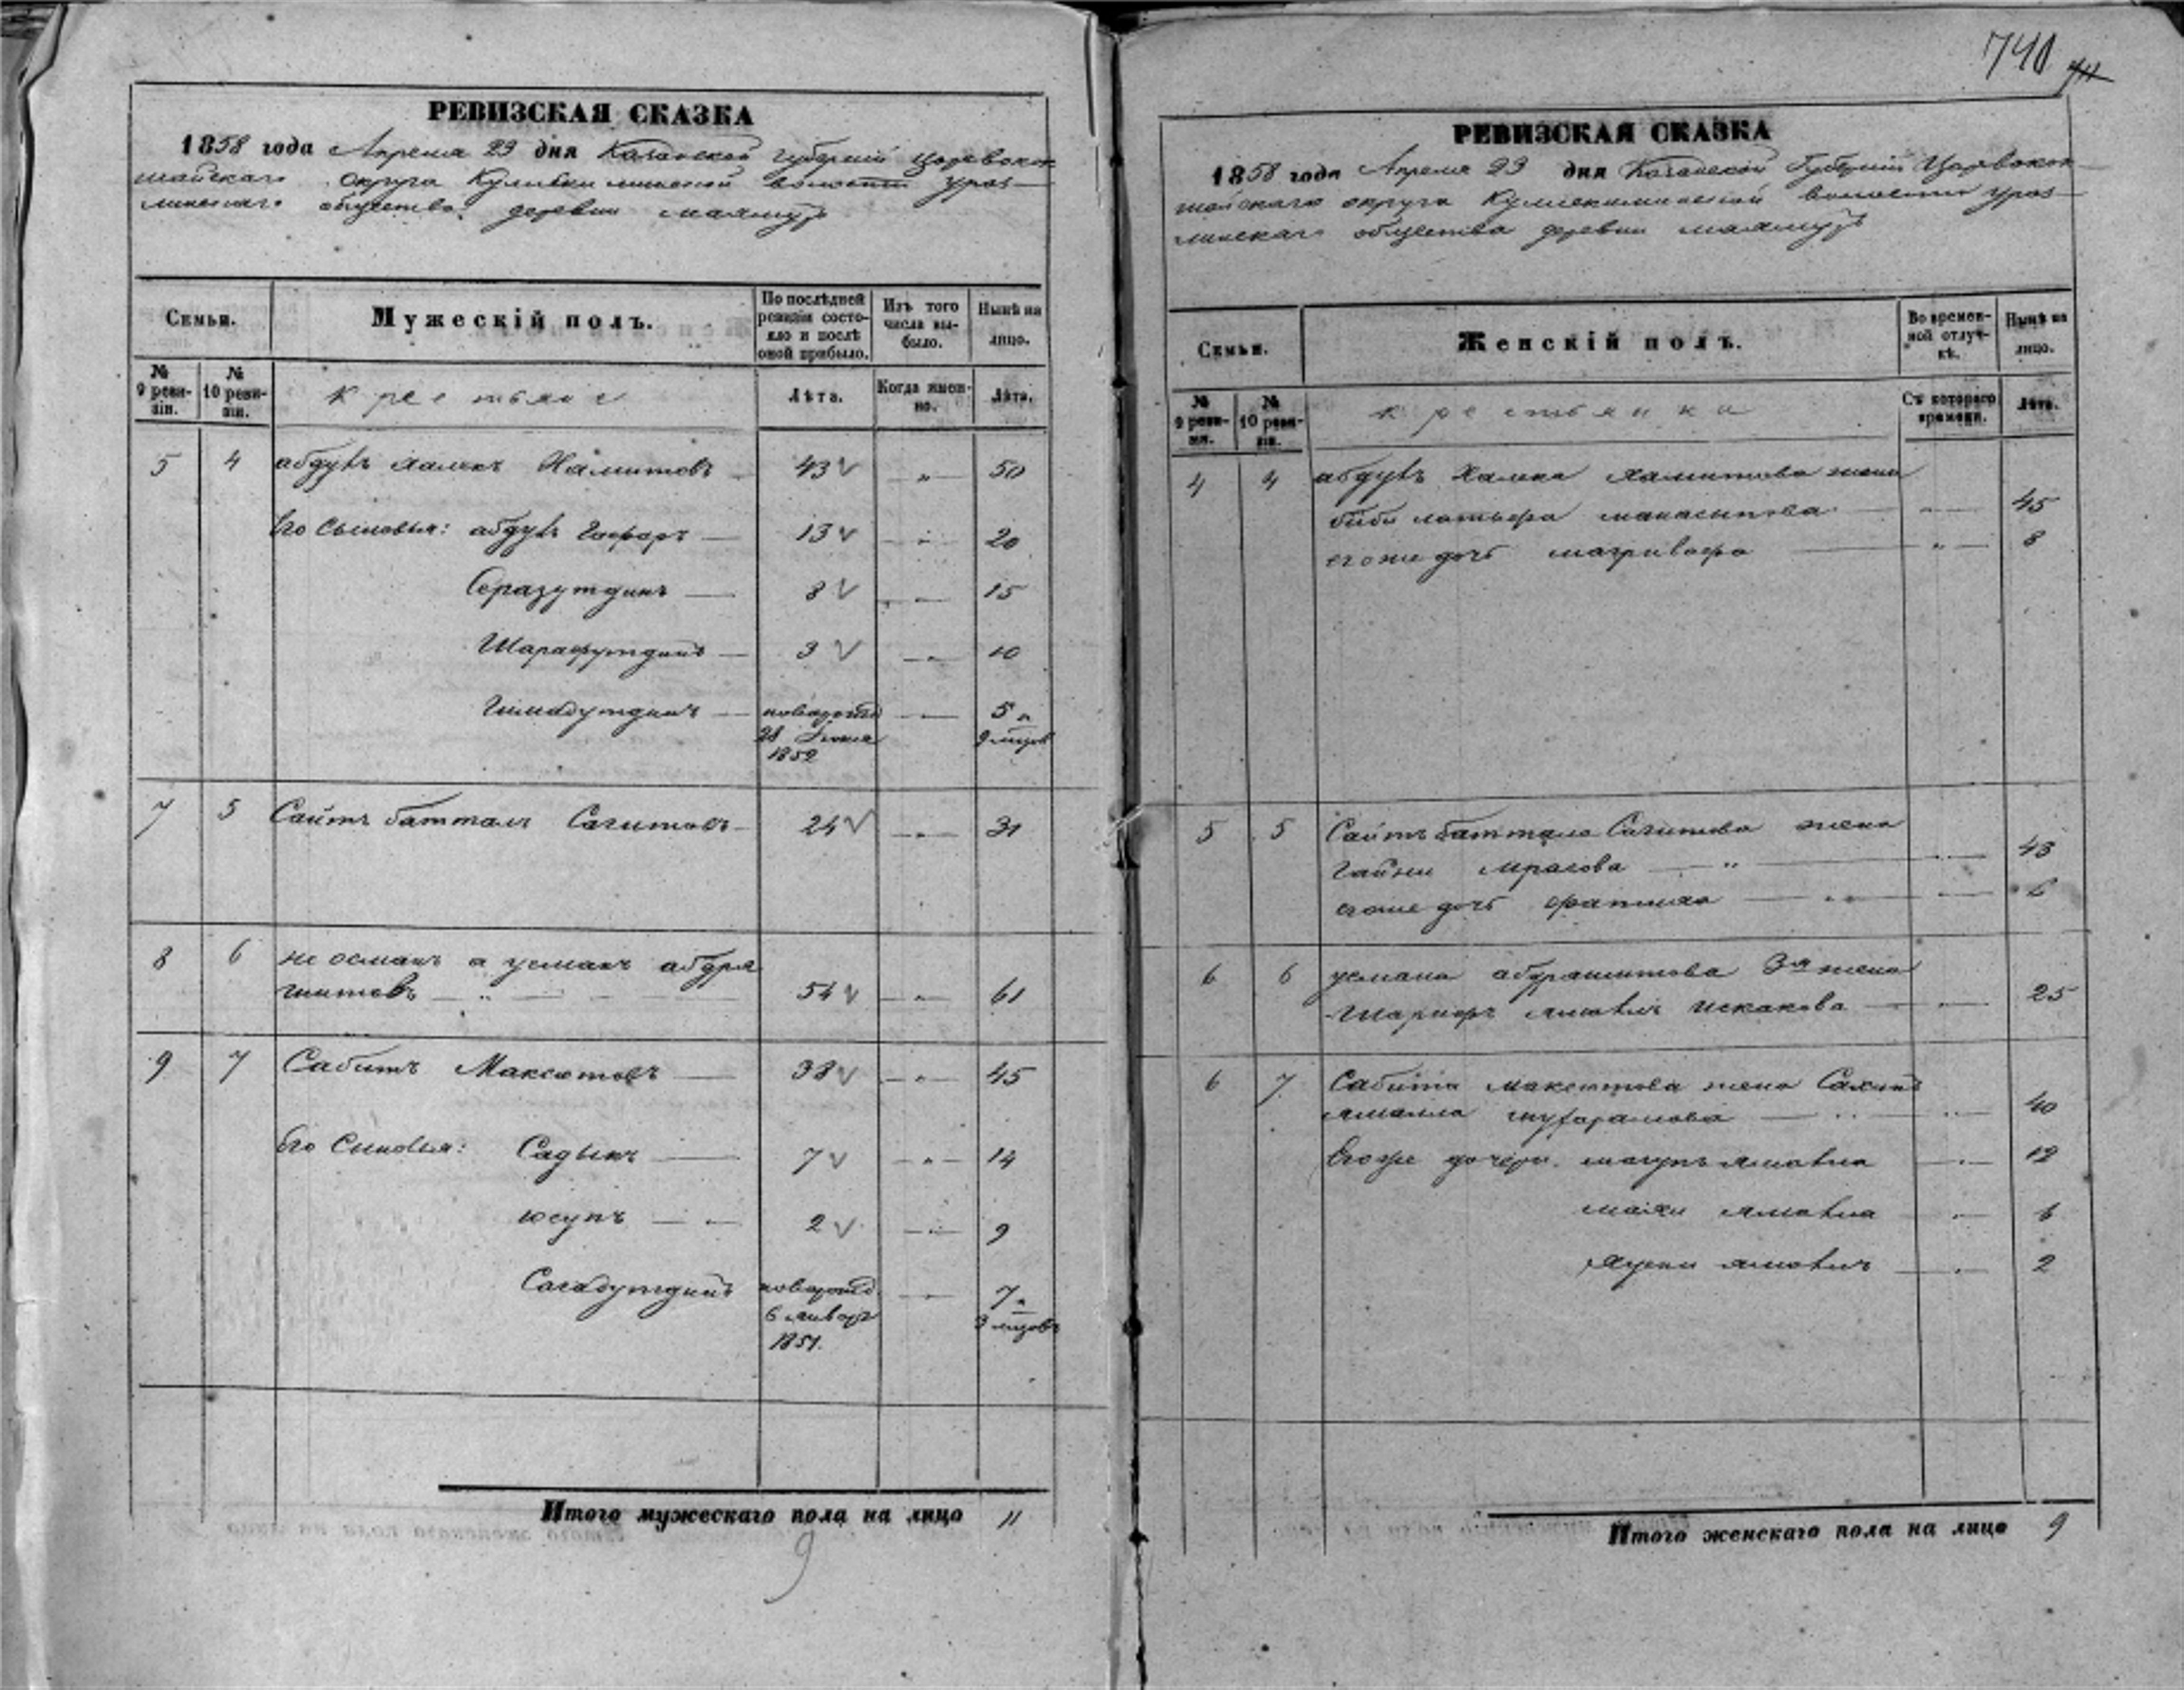 740
РЕВИЗСКАЯ СКАЗКА
1858 года Апреля 23 дня Казанской губернiи Царевокок-
шайскаго округа волости Ураз-
линскаго общества деревни
Семьи.
Мужескiй полъ.
По послѣдней ревизiи состо-яло и послѣ оной прибыло.
Изъ того числа вы-было.
Нынѣ на лицо.
№ 9 реви-зiи.
№ 10 реви-зiи.
крестьяне
Лѣта.
Когда имен-но.
Лѣта.
5 4 абдулъ Халекъ Хамитовъ — 43 „ 50
Его сыновья: абдулъ Гафаръ — 13 „ 20
Серазутдинъ — 8 „ 15
Шарафутдинъ — 3 „ 10
Гимадутдинъ — новорожд 5 и
28 Iюля 9 мцов
1852
7 5 Сайтъ батталъ Сагитовъ — 24 „ 31
8 6 не османъ а усманъ абдра
шитовъ — „ — 54 „ 61
9 7 Сабитъ Максютовъ — 38 „ 45
Его сыновья: Садыкъ — 7 „ 14
юсупъ — 2 „ 9
Сагадутдинъ новорожд. 7 и
6 январ 3 мцовъ
1851.
Итого мужескаго пола на лицо 11
9
РЕВИЗСКАЯ СКАЗКА
1858 года Апреля 23 дня Казанской Губернiи Царевокок-
шайскаго округа волости Ураз-
линскаго общества деревни
Семьи.
Женскiй полъ.
Во времен-ной отлуч-кѣ.
Нынѣ на лицо.
№ 9 реви-зiи.
№ 10 реви-зiи.
крестьянки
Съ котораго времени.
Лѣта.
4 4 абдулъ Халека Хамитова жена
биби латыфа — „ — 45
егоже дочь — „ — 8
5 5 Сайтъ баттала Сагитова жена
Гайни — „ — 43
егоже дочь фатиха — „ — 6
6 6 усмана абдрашитова 3я жена
Искакова — „ — 25
6 7 Сабита максютова жена
— „ — 40
Егоже дочери — „ — 12
— „ — 6
— „ — 2
Итого женскаго пола на лицо 9